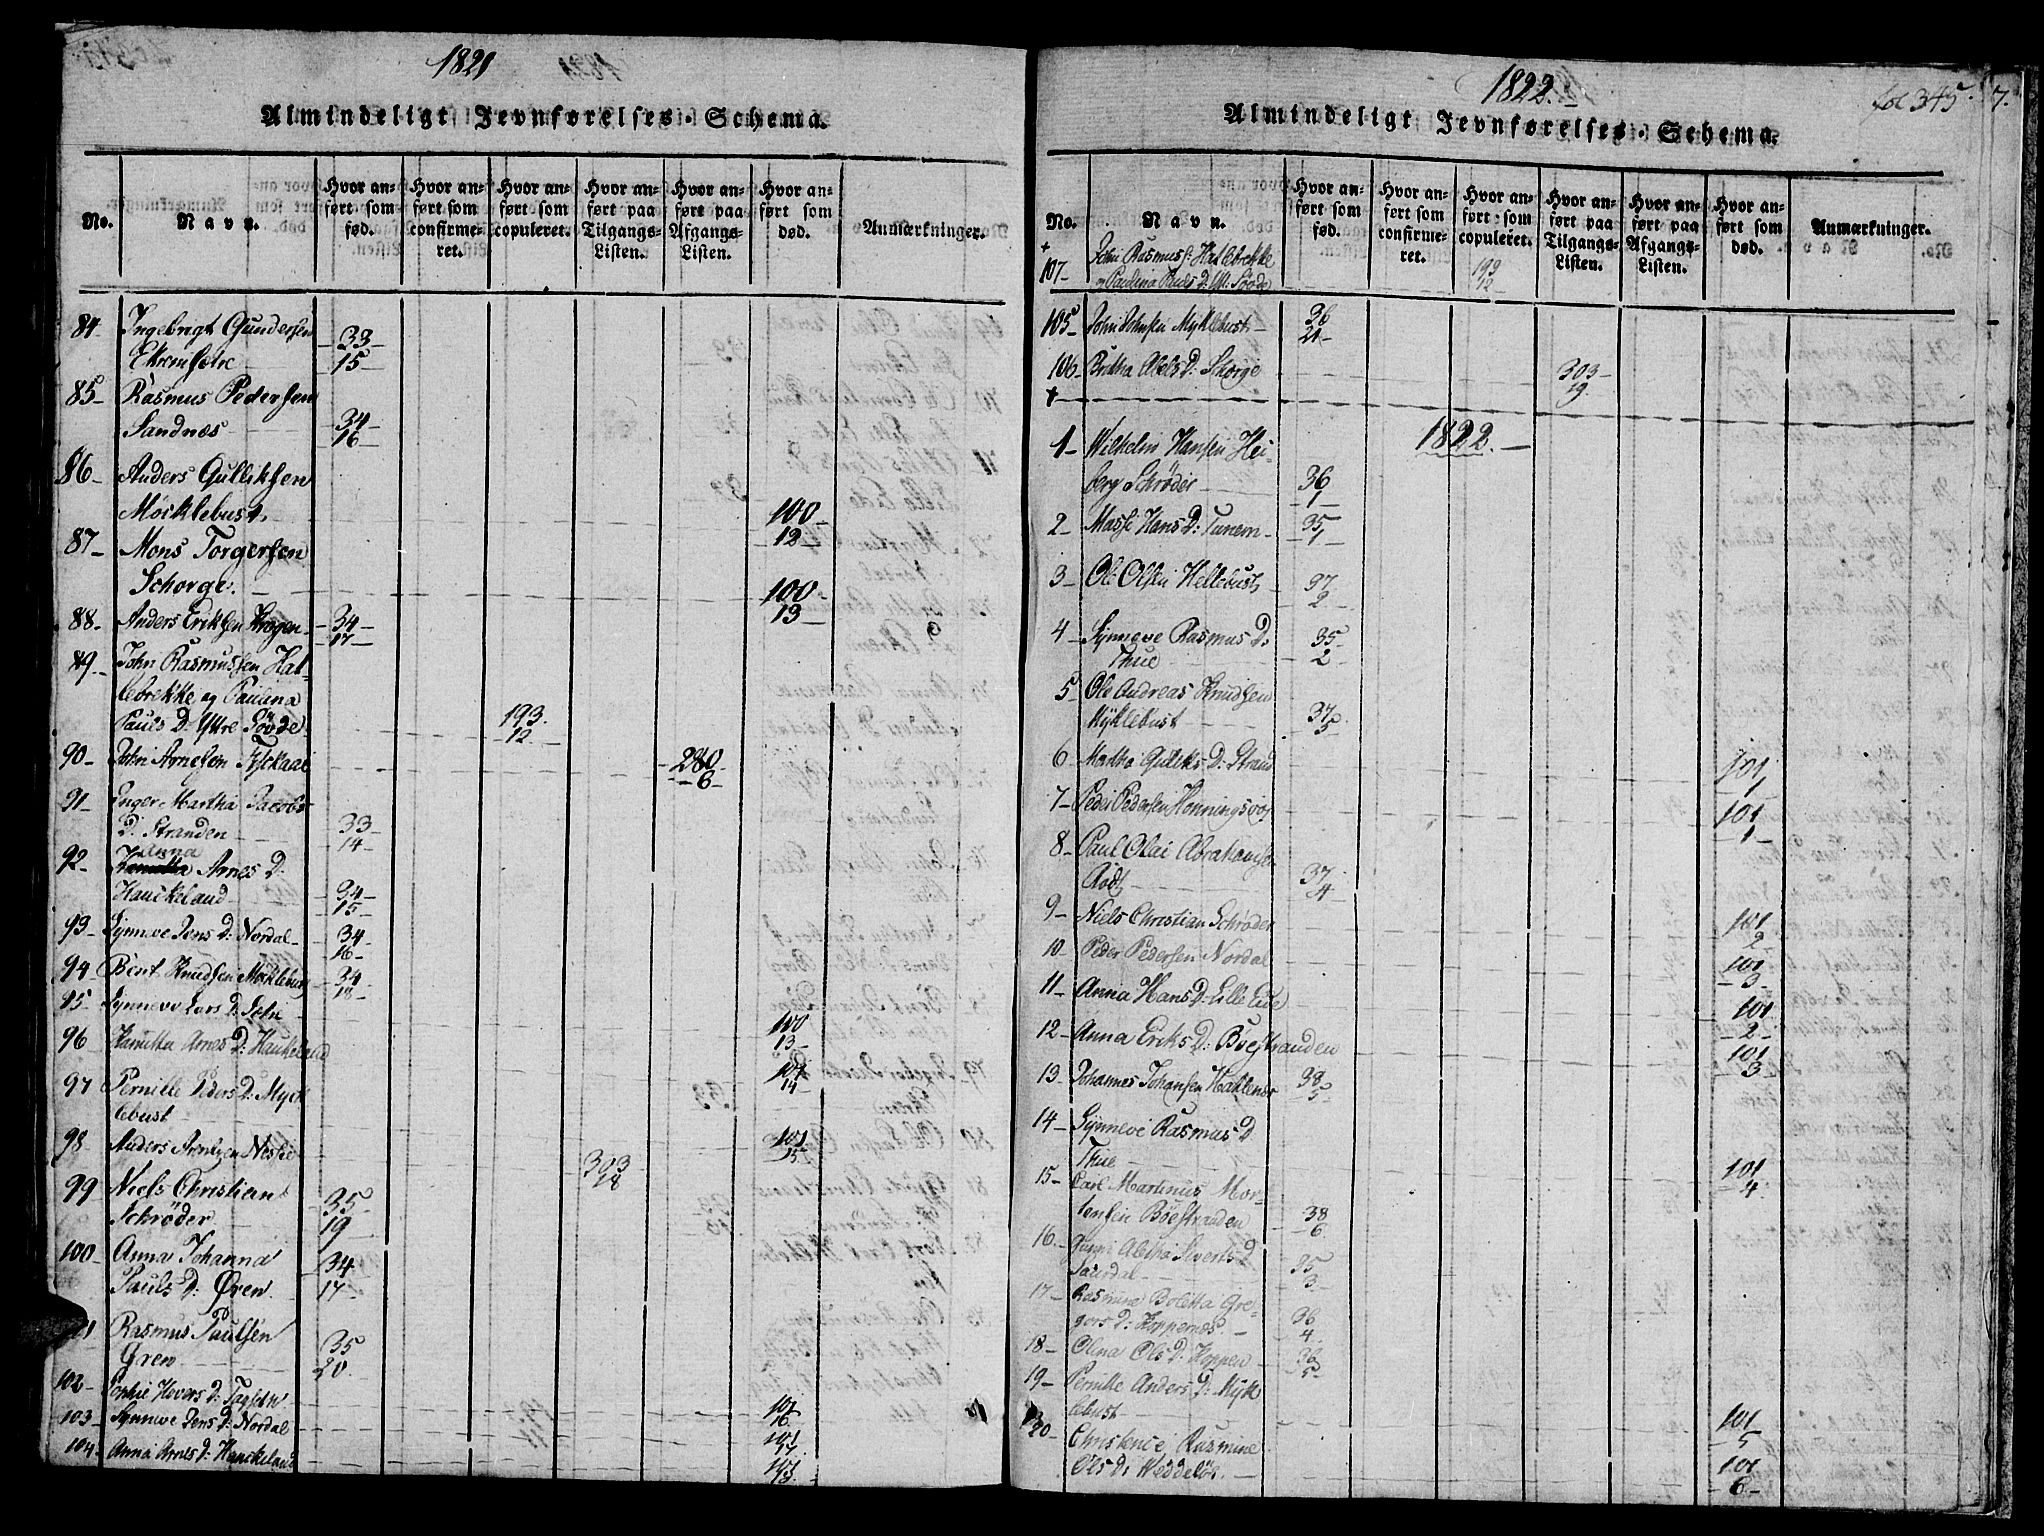 1821
Almindeligt Jevnførelses-Schema.
No.
Navn.
Hvor anført som fød.
Hvor anført som confirmeret.
Hvor anført som copuleret.
Hvor anført paa Tilgangs-Listen.
Hvor anført paa Afgangs-Listen.
Hvor anført som død.
Anmærkninger.
84 Ingebrigt Gundersen
Ekremsætre 33/15
85 Rasmus Pedersen
Sandnæs 34/16
86 Anders Gulliksen
Mocklebust. 100/12
87 Mons Torgersen
Schorge. 100/13
88. Anders Eriksen Krogen 34/17
89. John Rasmussen Hal-
lebrekke og Paulina
Pauls D. Ytre Søvde. 193/12
90 John Arnesen 280/6
91 Inger Martha Jacobs
D. Stranden 33/14
92 Anna Arnes D.
Hauckeland 34/15
93 Synneve Jens D: Nordal 34/16
94 Bent Knudsen Mocklebust 34/18
95 Synneve Lars D. 100/13
96 Kanutta Arnes D: Haukeland 101/14
97 Pernille Peders D: Myck
lebust 101/15
98. Anders Arntzen 303/18
99 Niels Christian
Schrøder 35/19
100 Anna Johanna
Pauls D: Øren 34/17
101 Rasmus Paulsen
Øren 35/20
102 Sophie Hevers D: 101/16
103 Synneve Jens D: Nordal 101/17
104 Anna Arnes D: Hauckeland 101/18
1822.
fol 345. 7.
Almindeligt Jevnførelses-Schema.
No.
Navn.
Hvor anført som fød.
Hvor anført som confirmeret.
Hvor anført som copuleret.
Hvor anført paa Tilgangs-Listen.
Hvor anført paa Afgangs-Listen.
Hvor anført som død.
Anmærkninger.
107 John Rasmuss: Hallebrekke
og Paulina Pauls D: Søvde 193/12
105 John Johnsen Myklebust 36/21
106 Britha Olels D: Schorge 303/19
1822.
1 Wilhelm Hansen Hei-
berg Schrøder 36/1
2 Masse Hans D: Tunem 35/1
3 Ole Olsen Hellebust 37/2
4 Synneve Rasmus D:
Thue 35/2
5 Ole Andreas Knudsen
Myklebust 37/3
6 Martha Guliks D: Strand 101/1
7 Peder Pedersen Honningsvog 101/1
8 Paul Olai Abrahamse
Aodt 37/4
9 Niels Christian Schrøder 101/2
10 Peder Pedersen Nordal 101/3
11 Anna Hans D: Lille Eide 101/2
12 Anna Eriks D: Boestranden 101/3
13 Johannes Johansen Haklenor 38/5
14 Synneve Rasmus D
Thue 101/4
15 Carl Martinus Mor-
tensen Böestranden 38/6
16 Alethia Siverts D
35/3
17 Rasmine Boletta Gre-
gers D: Koppernæs. 36/4
18 Olina Ols D: Koppen 36/5
19 Pernille Anders D: Myk
lebust 101/5
20 Christence Rasmine
Ols D: Weddelös. 101/6